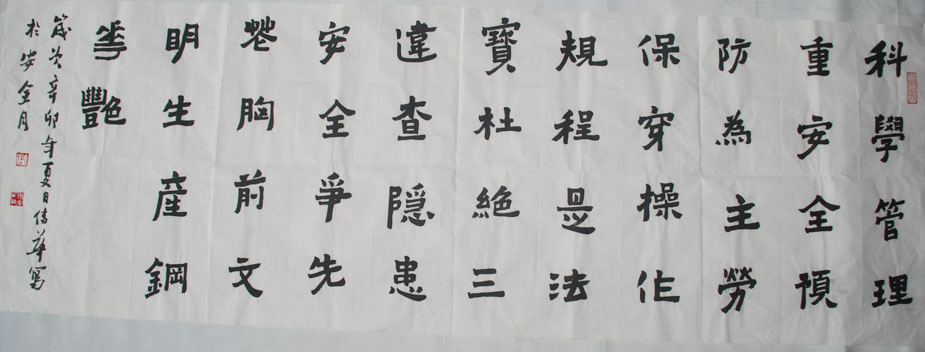 科學管理
重安全預
防為主勞
保穿操作
規程是法
寶杜絕三
違查隱患
安全爭先
花胸前文
明生產鋼
華艷
歲次辛卯年夏日传華寫
於安全月